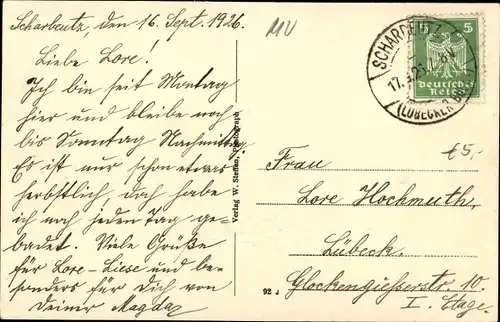 Scharbeutz, den 16. Sept. 1926.
Liebe Lore!
Ich bin seit Montag
hier und bleibe noch
bis Sonntag Nachmittag.
Es ist nur schon etwas
herbstlich, doch habe
ich noch jeden Tag ge-
badet. Viele Grüße
für Lore-Liese und be-
sonders für Dich von
Deiner Magda
MV
Verlag W. Steffen, Photograph
92
5 5
Deutsches
Reich
SCHARBEUTZ
17.9.26.
(LÜBECKER
€5,-
Frau
Lore Hochmuth,
Lübeck.
Glockengiesserstr. 10
I. Etage.